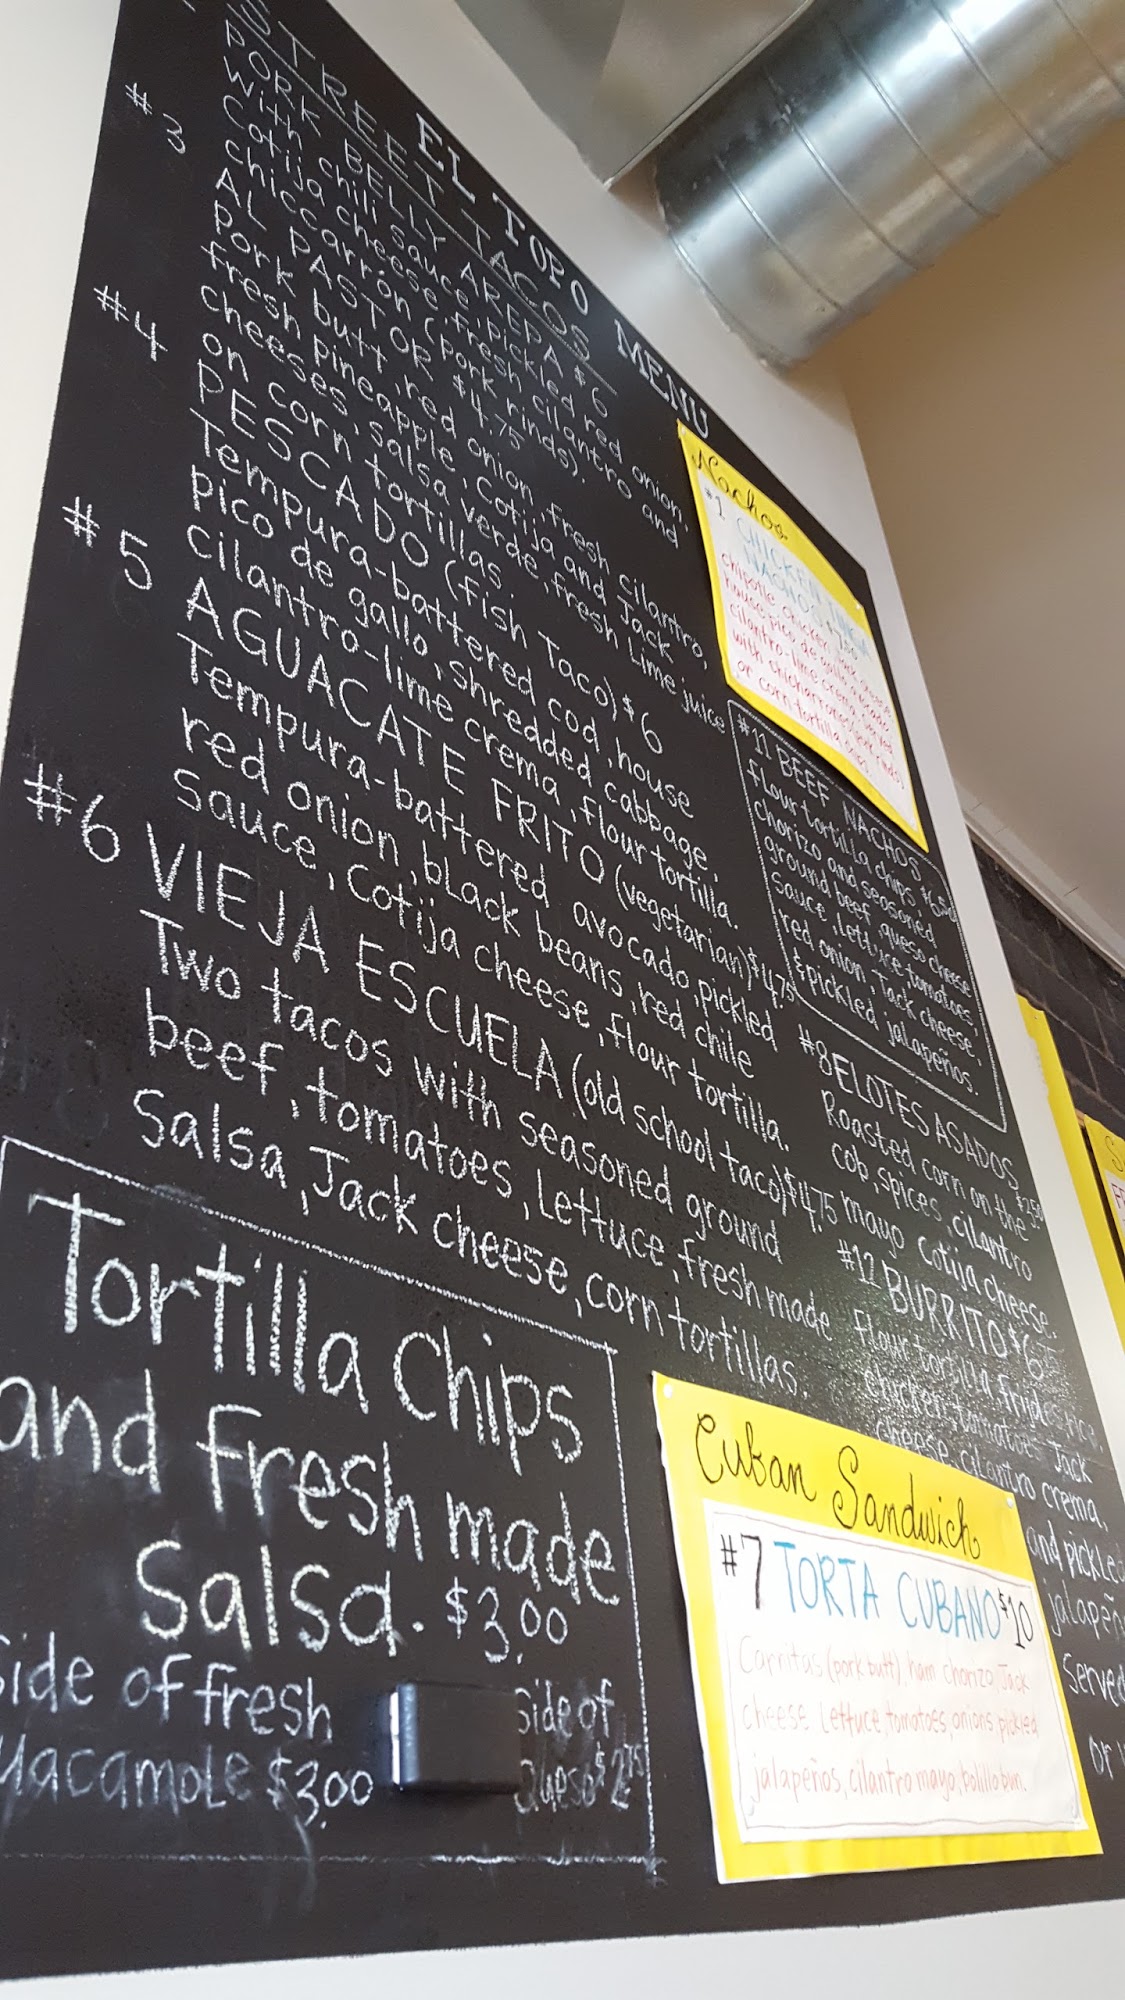 EL TOPO MENU
STREET TACOS
PORK BELLY AREPA $6
with chili sauce, pickled red onion,
Cotija cheese, fresh cilantro and
chiccarrón (pork rinds).
#3 AL PASTOR $4.75
Pork butt, red onion, fresh cilantro,
fresh pineapple, Cotija and Jack
cheeses, salsa verde, fresh Lime juice
on corn tortillas.
#4 PESCADO (fish Taco) $6
Tempura-battered cod, house
pico de gallo, shredded cabbage,
cilantro-lime crema, flour tortilla.
#5 AGUACATE FRITO (vegetarian) $4.75
Tempura-battered avocado, pickled
red onion, black beans, red chile
sauce, Cotija cheese, flour tortilla.
#6 VIEJA ESCUELA (old school taco) $4.75
Two tacos with seasoned ground
beef, tomatoes, Lettuce, fresh made
Salsa, Jack cheese, corn tortillas.
Tortilla Chips
and Fresh made
Salsa. $3.00
Side of fresh
$3.00
Side of
Queso $2.75
Nachos
#1 CHICKEN TINGA
NACHOS
chipotle chicken, Jack cheese
house pico de gallo, avocado
cilantro-lime crema, Served
with chicharrones (pork rinds)
or corn tortilla chips.
#11 BEEF NACHOS $6.50
Flour tortilla chips,
chorizo and seasoned
ground beef, queso cheese
sauce, lettuce, tomatoes,
red onion, Jack cheese,
& pickled jalapeños.
#8 ELOTES ASADOS $3.50
Roasted corn on the
cob, spices, cilantro
mayo Cotija cheese.
#12 BURRITO $6
Flour tortilla,
chicken, tomatoes, Jack
cheese, cilantro crema,
and pickled
jalapeño
Served
or
Cuban Sandwich
#7 TORTA CUBANO $10
Carnitas (pork butt), ham chorizo, Jack
cheese Lettuce, tomatoes, onions, pickled
jalapeños, cilantro mayo, bolillo bun.